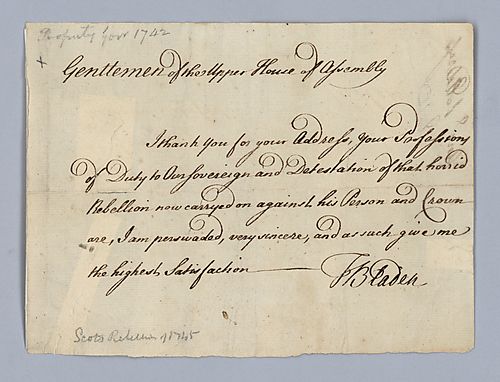 Gov 1742
+
Gentlemen of the Upper House of Assembly
I thank you for your Address, Your Professions
of Duty to Our Sovereign and Detestation of that horrid
Rebellion now carryed on against his Person and Crown
are, I am perswaded, very sincere, and as such give me
the highest Satisfaction
T Bladen
Scots Rebellion of 1745